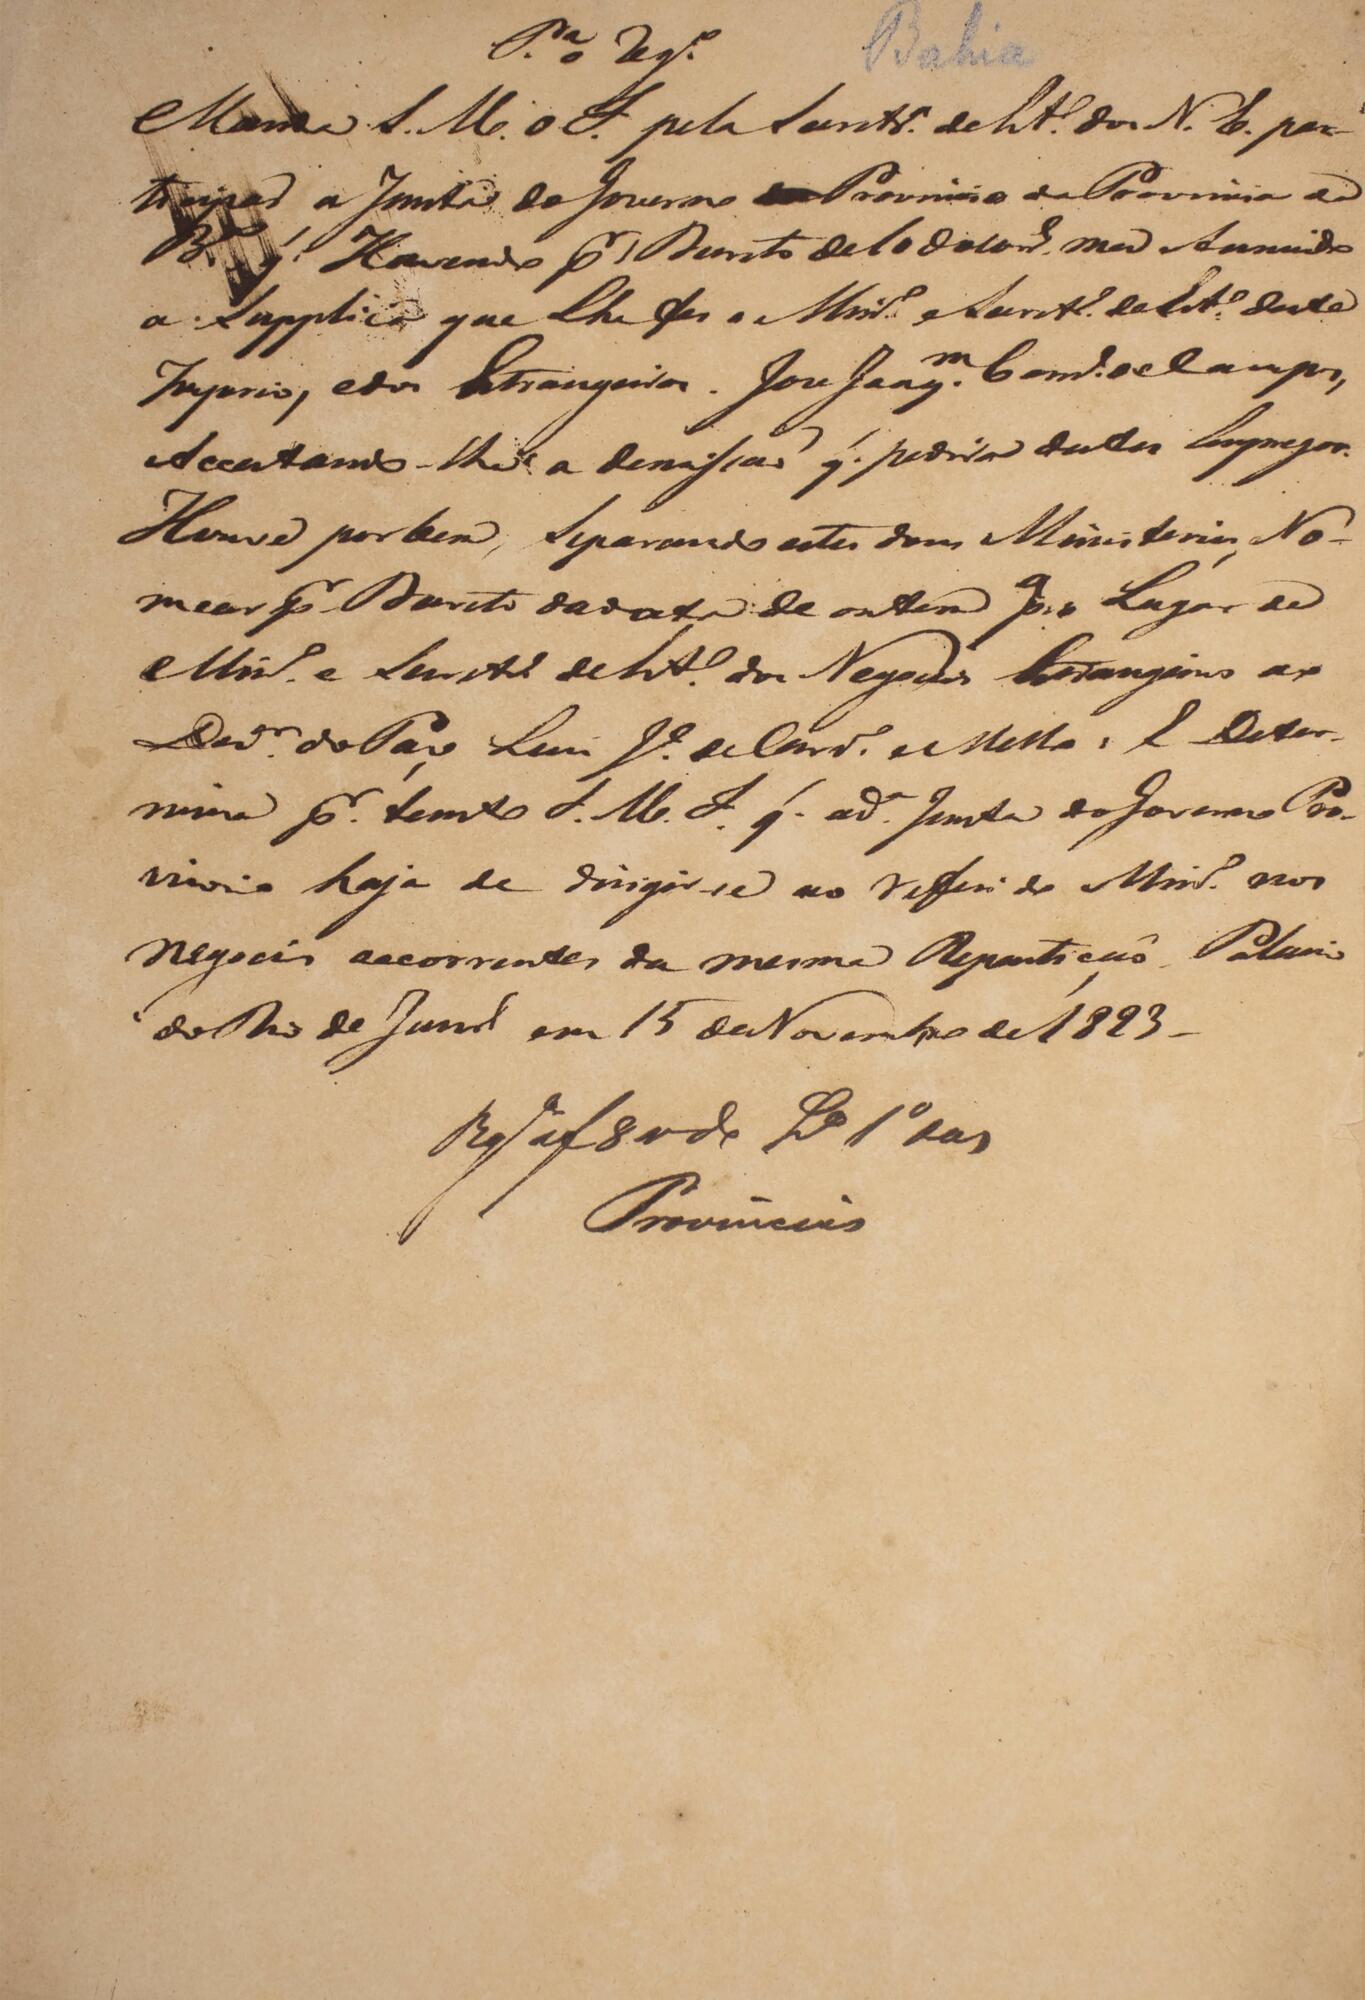 P.ª o Reg.º Bahia
Manda S. M. o I. pela Secretr.ª de Est.º dos N. E. par-
ticipar a Junta do Governo Provisorio da Provincia da
B.ª q.' Havendo p.r Decreto de 10 do corr.e mez Annuido
a Supplica que lhe fez o Min.º e Secret.º de Est.º deste
Imperio, e dos Estrangeiros. Jose Joaq.m Carn.º de Campos,
Acceitando-lhe a demissaõ q.' pedira destes Empregos.
Houve por bem, Separando estes dous Ministerios, No-
mear p.r Decreto da data de ontem p.ª o Lugar de
Min.º e Secret.º de Est.º dos Negocios Estrangeiros ao
Dez.or do Paço Luis J.e de Carv.º e Mello: E Deter-
mina p.r tanto S. M. I. q.' a d.ª Junta do Governo Pro-
visorio haja de dirigir-se ao referido Min.º nos
negocios occorrentes da mesma Repartiçaõ. Palacio
do Rio de Janr.º em 15 de Novembro de 1823 -
Rg.da a f 8 v do L.º 1º das
Provincias